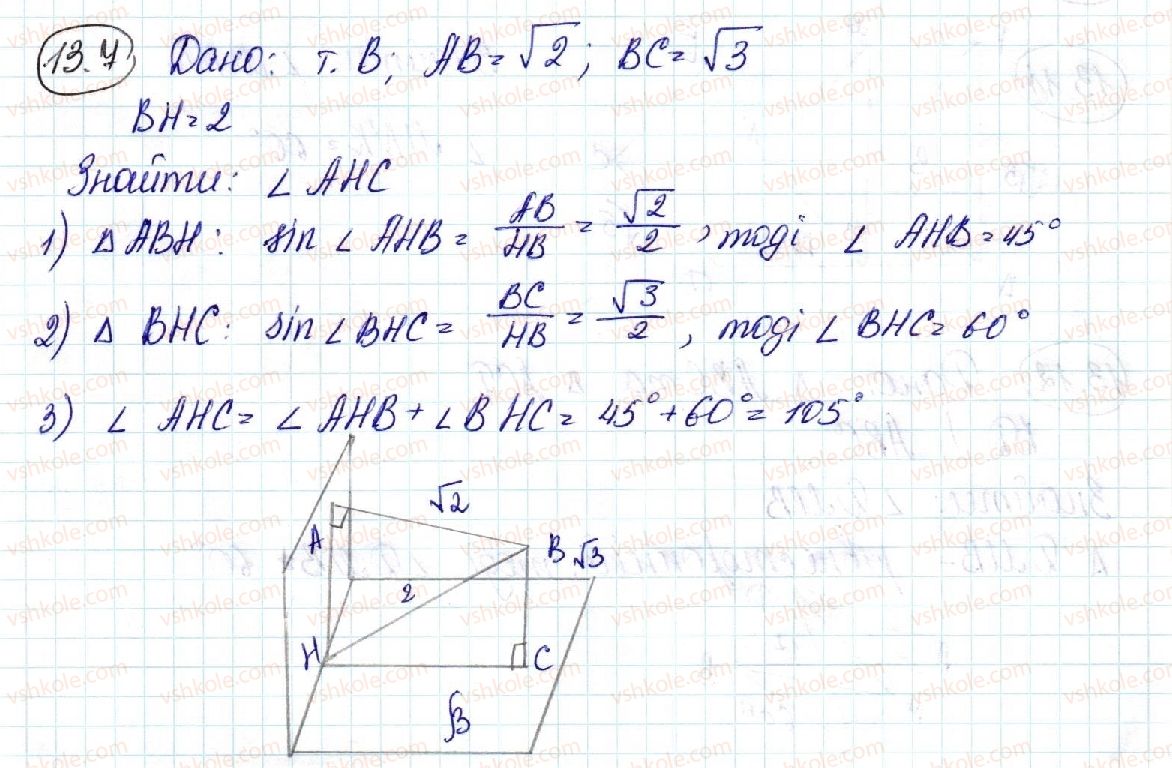 13.7 Дано: т. B; AB=√2; BC=√3
BH=2
Знайти: ∠ AHC
1) △ ABH: sin ∠ AHB = AB/HB = √2/2, тоді ∠ AHB=45°
2) △ BHC: sin ∠ BHC = BC/HB = √3/2, тоді ∠ BHC=60°
3) ∠ AHC= ∠ AHB + ∠ BHC= 45°+60°= 105°
√2
A
B √3
2
H
C
β